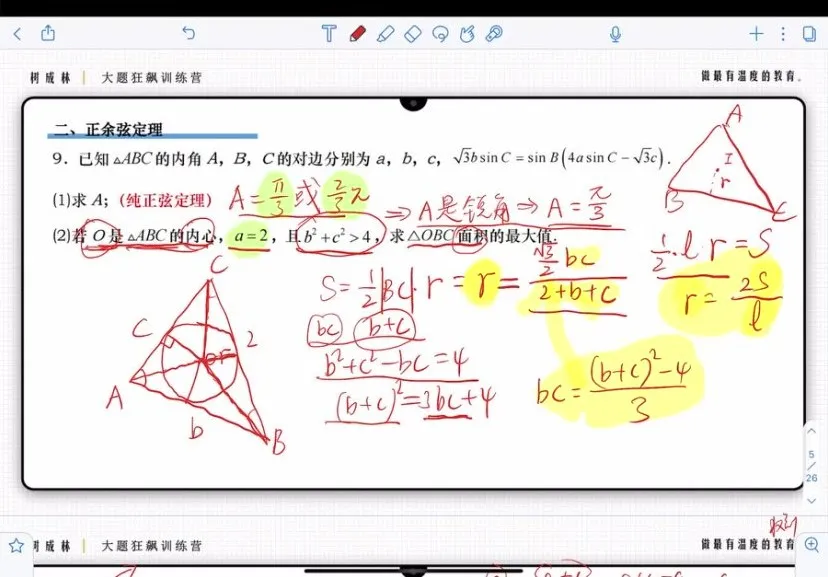 树成林 | 大题狂飙训练营
做最有温度的教育。
二、正余弦定理
9. 已知△ABC的内角 A，B，C的对边分别为 a，b，c，√3bsinC=sinB(4asinC−√3c).
(1)求 A；(纯正弦定理) A=π/3或2/3π
⇒A是锐角⇒A=π/3
(2)若 O是△ABC的内心，a=2，且b²+c²>4，求△OBC面积的最大值.
A
I
r
B
C
1/2·l·r=S
r=2S/l
S=1/2|BC|·r=r=(√3/2 bc)/(2+b+c)
bc b+c
b²+c²−bc=4
(b+c)²=3bc+4
bc=((b+c)²−4)/3
C
C
2
A
b
B
5
/
26
树成林 | 大题狂飙训练营
做最有温度的教育